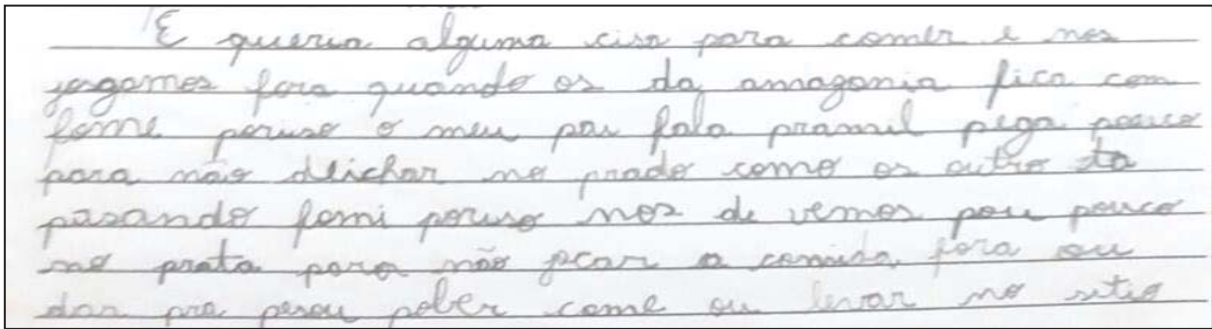 E queria alguma cisa para comer e nos
jogamos fora quando os da amazonia fica com
fome poruso o meu pai fala pramil pega pouco
para não deichar no prado como os outro ta
pasando fomi poruso nos de vemos pou pouco
no prata para não jocar a comida fora ou
dar pra pesou pober come ou levar no sitio